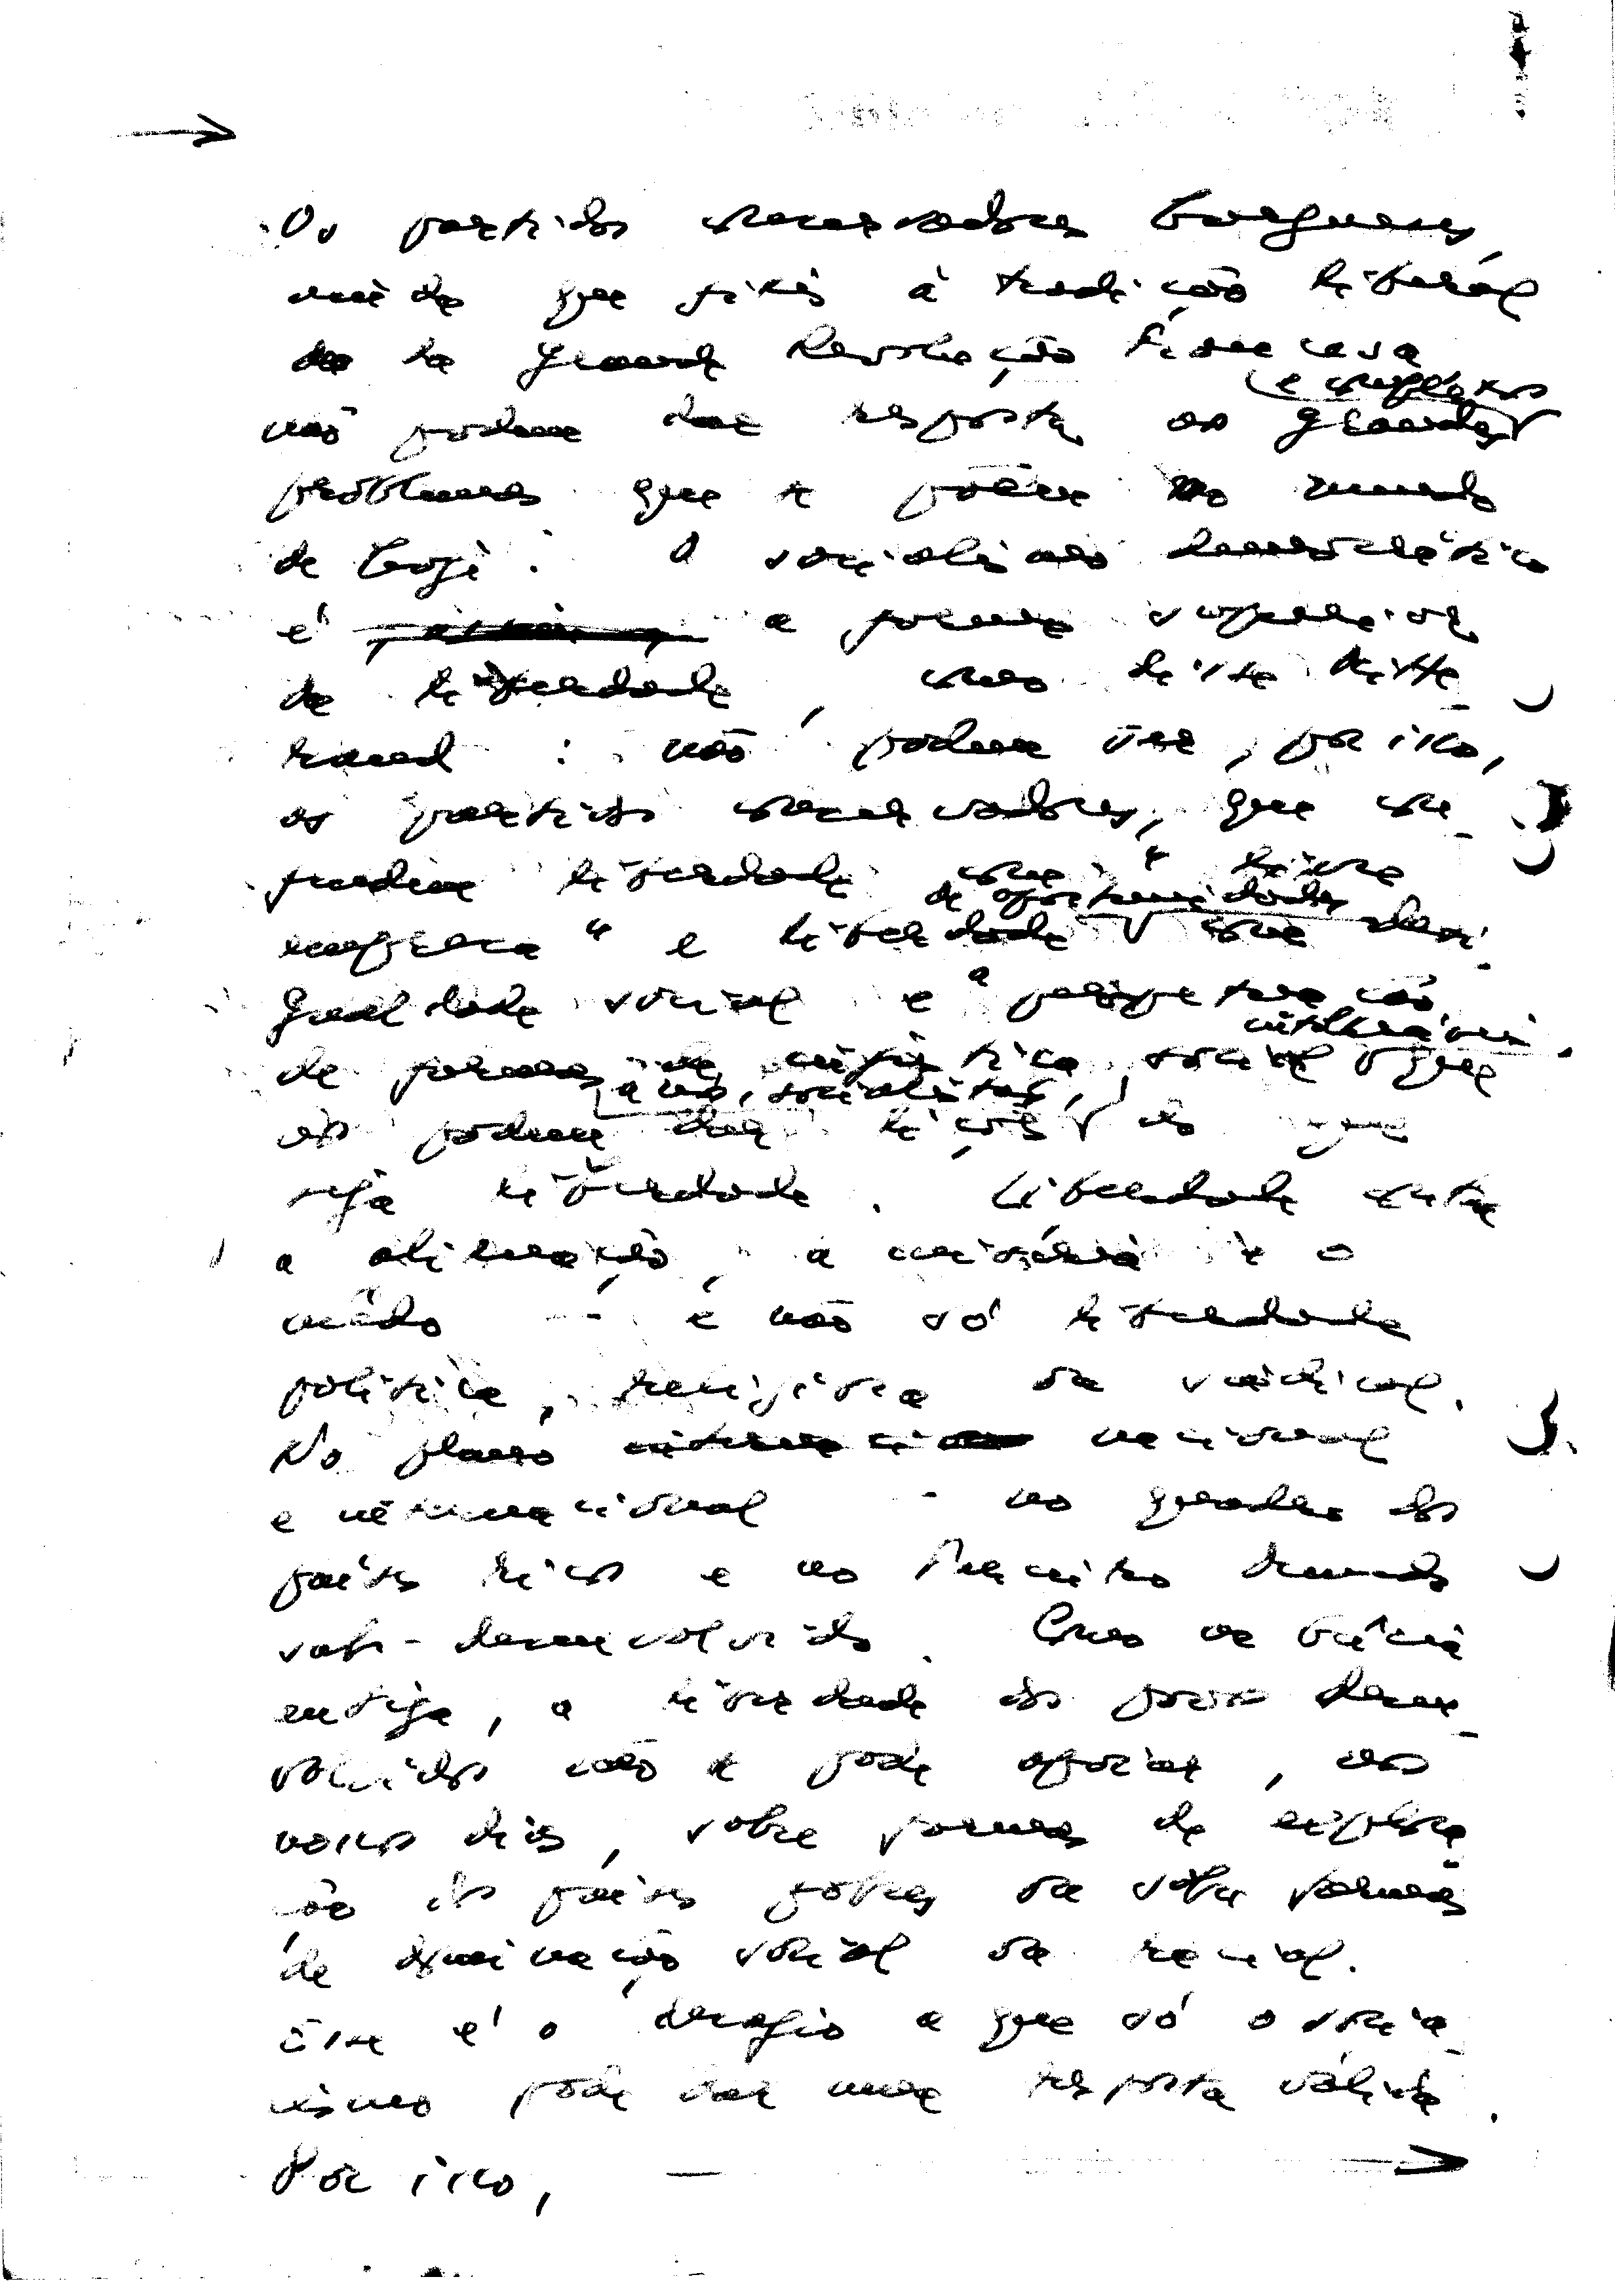 Os partidos conservadores burgueses,
ainda que fiéis à tradição liberal
da Grande Revolução Francesa
não podem dar resposta aos grandes e complexos
problemas que se põem ao mundo
de hoje. O socialismo democrático
é a forma superior
de liberdade, como disse Mitte-
rrand: não podem ser, por isso,
os partidos conservadores, que con-
fundem liberdade com "livre
empresa" e liberdade de oportunidades com desi-
gualdade social e a perpetuação
de formas de injustiça social intoleráveis, que
nos podem dar, a nós, socialistas, lições do que
seja liberdade. Liberdade contra
a alienação, a miséria e o
mêdo - e não só liberdade
politica, religiosa ou sindical.
No plano nacional
e internacional - no quadro dos
países ricos e no Terceiro Mundo
sub-desenvolvido. Como na Grécia
antiga, a liberdade dos povos desen-
volvidos não se pode apoiar, nos
nossos dias, sobre formas de explora-
ção dos países pobres ou sobre formas
de dominação social ou racial.
Êsse é o desafio a que só o socia-
lismo pode dar uma resposta válida.
Por isso,